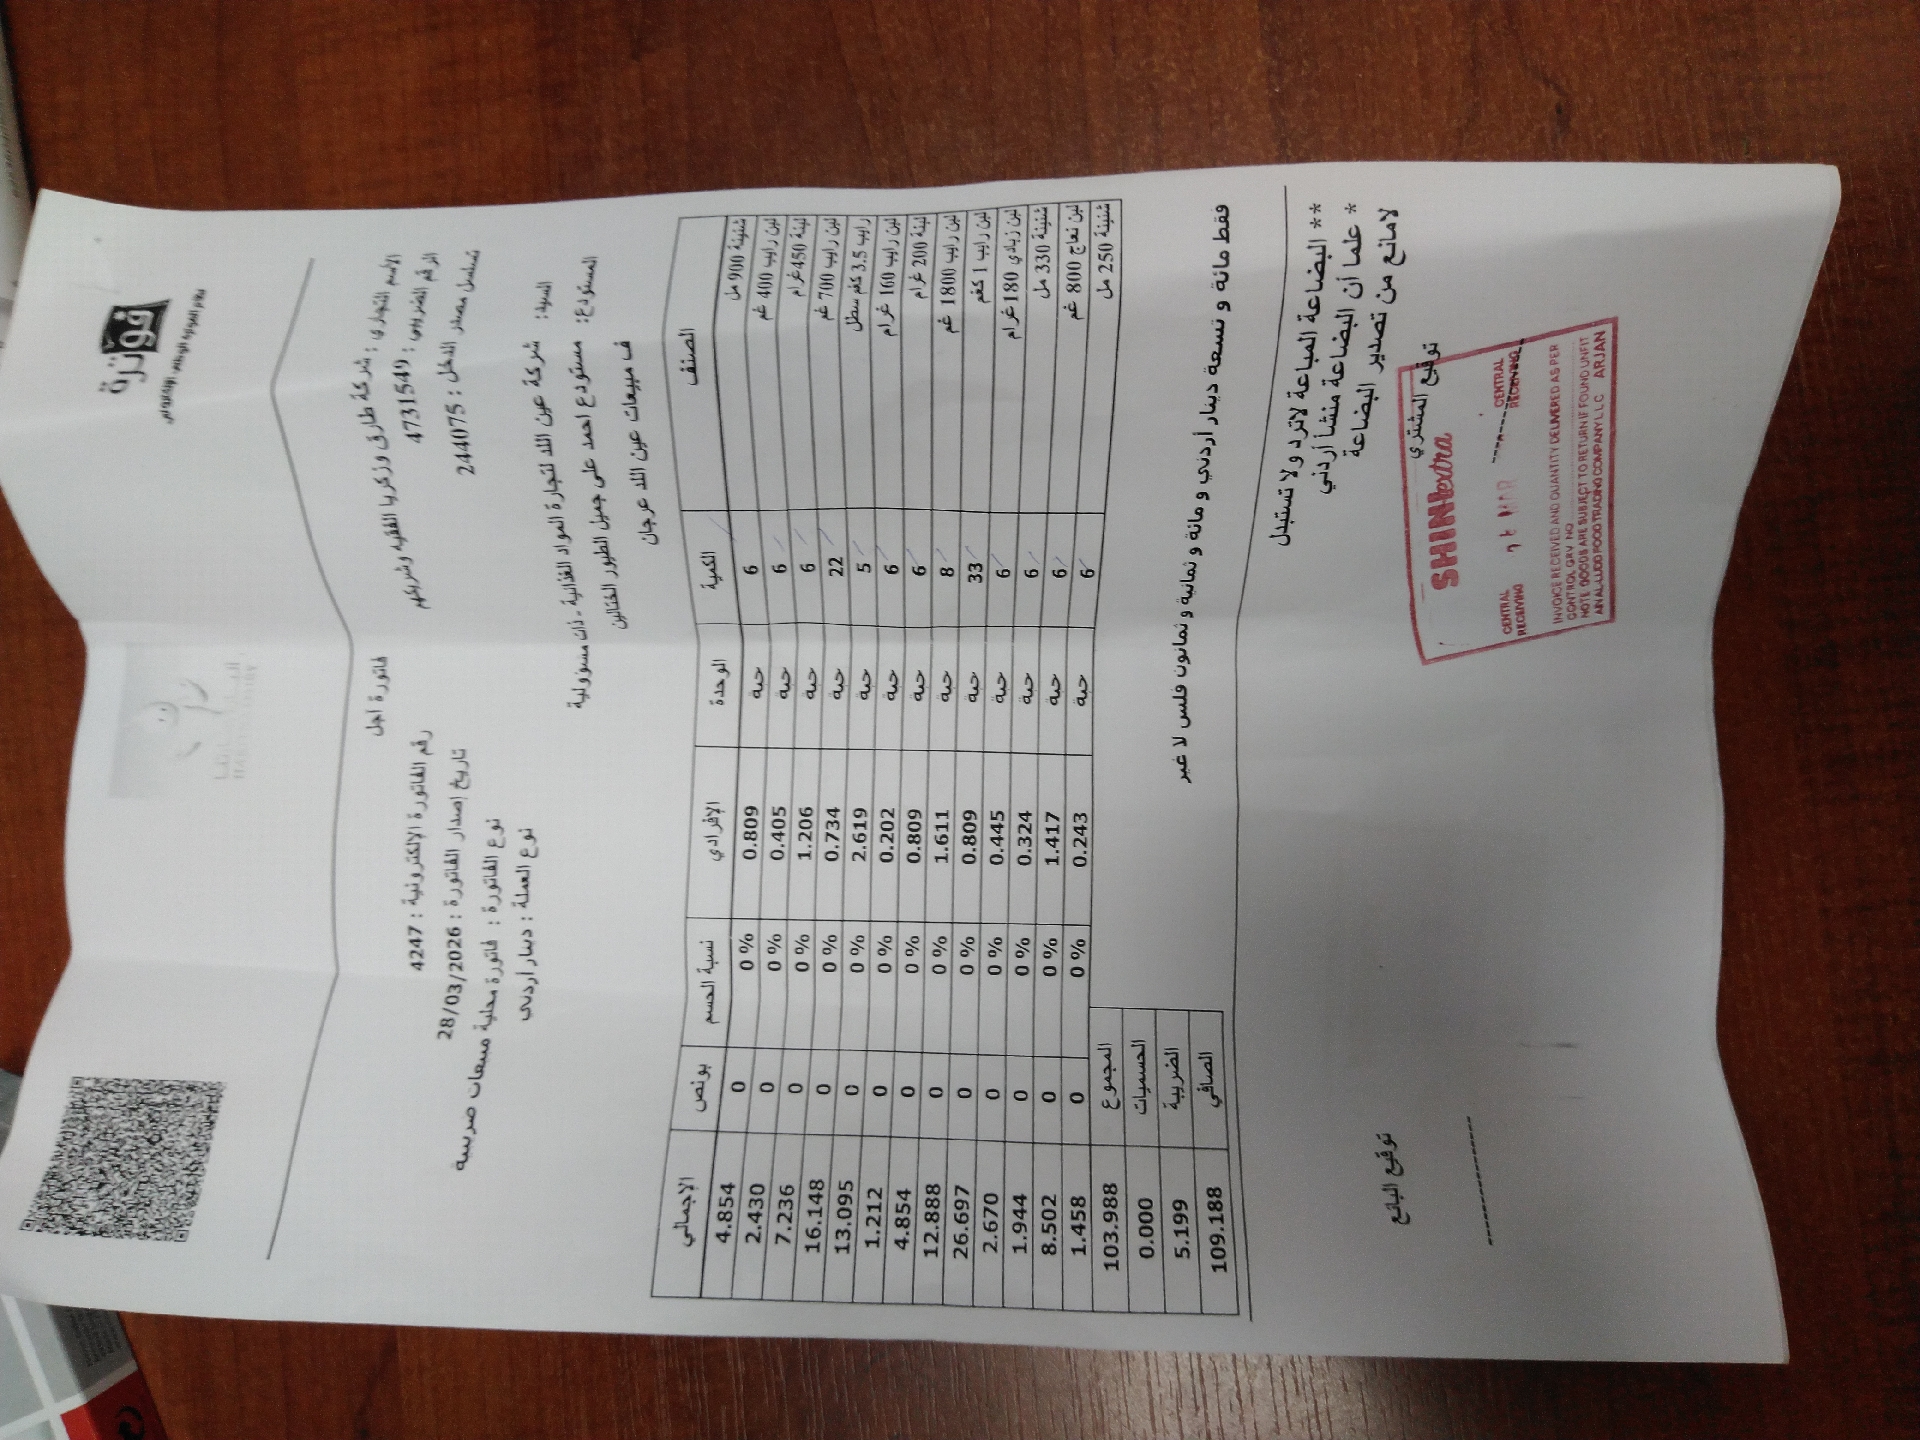 فوترة
نظام الفوترة الوطني الإلكتروني
الاسم التجاري : شركة طارق وزكريا الفقيه وشريكهم
الرقم الضريبي : 4731549
تسلسل مصدر الدخل : 244075
فاتورة اجل
رقم الفاتورة الإلكترونية : 4247
تاريخ إصدار الفاتورة : 28/03/2026
نوع الفاتورة : فاتورة محلية مبيعات ضريبية
نوع العملة : دينار اردني
السيد: شركة عين اللد لتجارة المواد الغذائية - ذات مسؤولية
المستودع: مستودع احمد علي جميل الطيور الختالين
ف مبيعات عين اللد عرجان
الصنف الكمية الوحدة الإفرادي نسبة الحسم بونص الإجمالي
شنينة 900 مل 6 حبة 0.809 0 % 0 4.854
لبن رايب 400 غم 6 حبة 0.405 0 % 0 2.430
لبنة 450غرام 6 حبة 1.206 0 % 0 7.236
لبن رايب 700 غم 22 حبة 0.734 0 % 0 16.148
رايب 3.5 كغم سطل 5 حبة 2.619 0 % 0 13.095
لبن رايب 160 غرام 6 حبة 0.202 0 % 0 1.212
لبنة 200 غرام 6 حبة 0.809 0 % 0 4.854
لبن رايب 1800 غم 8 حبة 1.611 0 % 0 12.888
لبن رايب 1 كغم 33 حبة 0.809 0 % 0 26.697
لبن زبادي 180غرام 6 حبة 0.445 0 % 0 2.670
شنينة 330 مل 6 حبة 0.324 0 % 0 1.944
لبن نعاج 800 غم 6 حبة 1.417 0 % 0 8.502
شنينة 250 مل 6 حبة 0.243 0 % 0 1.458
المجموع 103.988
الحسميات 0.000
الضريبة 5.199
الصافي 109.188
فقط مائة و تسعة دينار أردني و مائة و ثمانية و ثمانون فلس لا غير
** البضاعة المباعة لاترد ولا تستبدل
* علما أن البضاعة منشأ أردني
لامانع من تصدير البضاعة
توقيع المشتري
توقيع البائع
SHINI extra
CENTRAL RECEIVING
MAR
CENTRAL RECEIVING
INVOICE RECEIVED AND QUANTITY DELIVERED AS PER
CONTROL GRV NO
NOTE GOODS ARE SUBJECT TO RETURN IF FOUND UNFIT
AIN AL-LUDD FOOD TRADING COMPANY LLC ARJAN